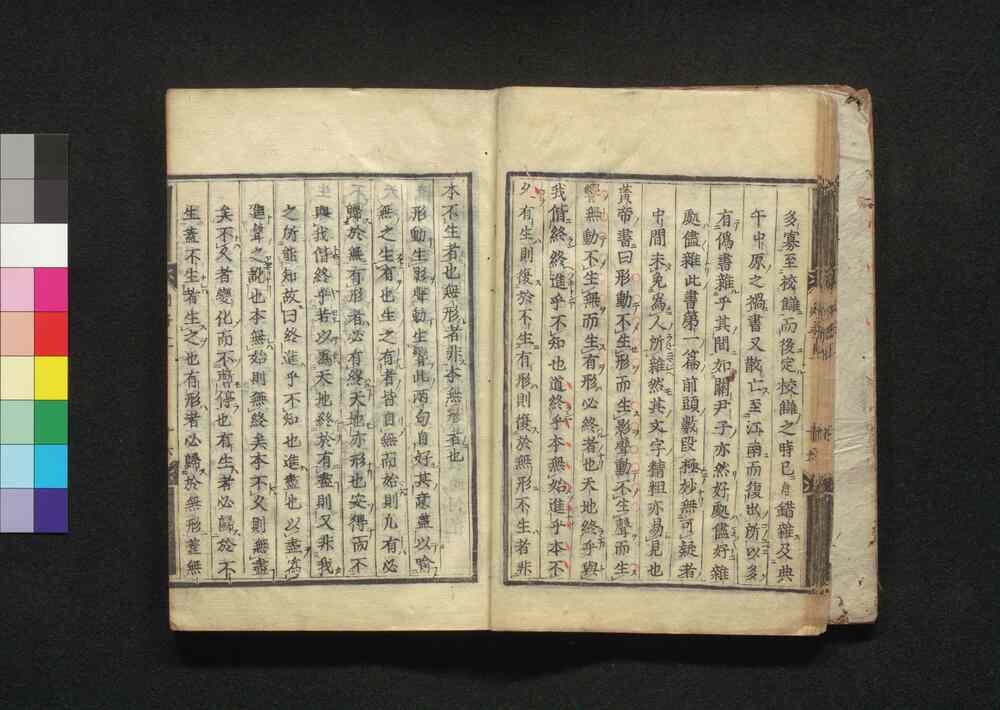 多寡至校讎而後定校讎之時已自錯雜及典
午中原之禍書又散亡至江南而復出所以多
有僞書雜乎其間如關尹子亦然好處儘好雜
處儘雜此書第一篇前頭數段極妙無可疑者
中間未免爲人所雜然其文字精粗亦易見也
黃帝書曰形動不生形而生影聲動不生聲而生
響無動不生無而生有形必終者也天地終乎與
我偕終終進乎不知也道終乎本無始進乎本不
久有生則復於不生有形則復於無形不生者非
本不生者也無形者非本無形者也
形動生影聲動生響此兩句自好其意蓋以喻
無之生有也生之有者皆自無而始則凡有必
歸於無有形者必有終天地亦形也安得而不
與我偕終乎若以爲天地終於有盡則又非我
之所能知故曰終進乎不知也進盡也以盡爲
進聲之訛也本無始則無終矣本不久則無盡
矣不久者變化而不暫停也有生者必歸於不
生蓋不生者生之也有形者必歸於無形蓋無